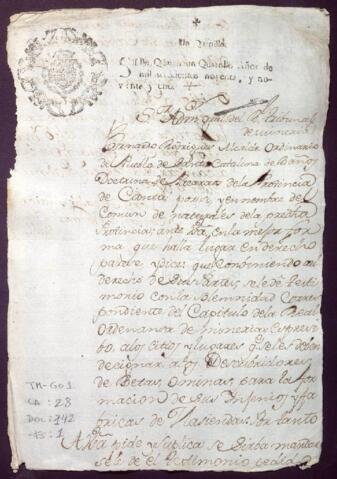 Un Quartillo
Sello Quarto Un Quartillo, Años de
mil setecientos noventa, y no-
venta y uno
S. Admor. gral. del R. Tribunal
de mineria
Fernando Rodriguez Alcalde Ordinario
de Pueblo de Santa Catalina de Baños
Doctrina de Atavar de la Provincia
de Canta, por si y en nombre del
Comun de naturales de la recita
Provincia; ante Va. en la mejor for
ma que halla lugar en derecho
parece, y dice: que Combiniendo al
derecho de Sus Partes, se le dé testi
monio con la Solemnidad Corres
pondiente del Capitulo de la Real
Ordenanza de mineria
a los citios y lugares q. se les deben
designar a los Descubridores
de Betas, o minas, para la for
macion de sus Ingenios, y fa
bricas de Haciendas. Por tanto
A Va. pide y suplica se sirva mandar
se le dé el testimonio
TM-GO1
CA : 28
DOC : 142
FS : 1